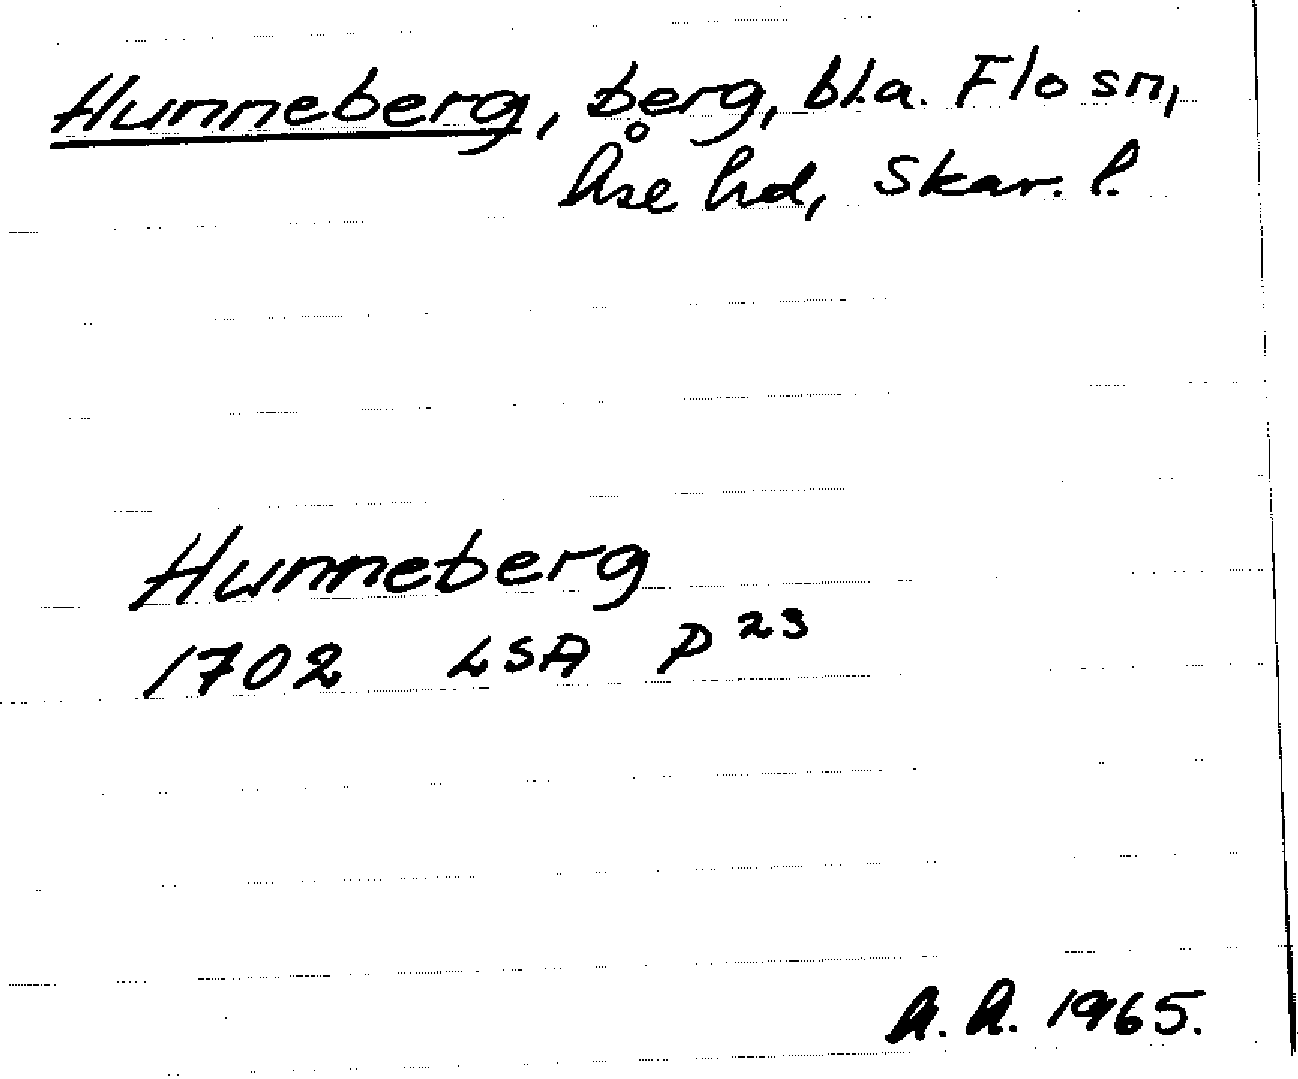 Hunneberg, berg, bl.a. Flo sn,
Åse hd, Skar. l.
Hunneberg
1702 LSA P 23
A. A. 1965.